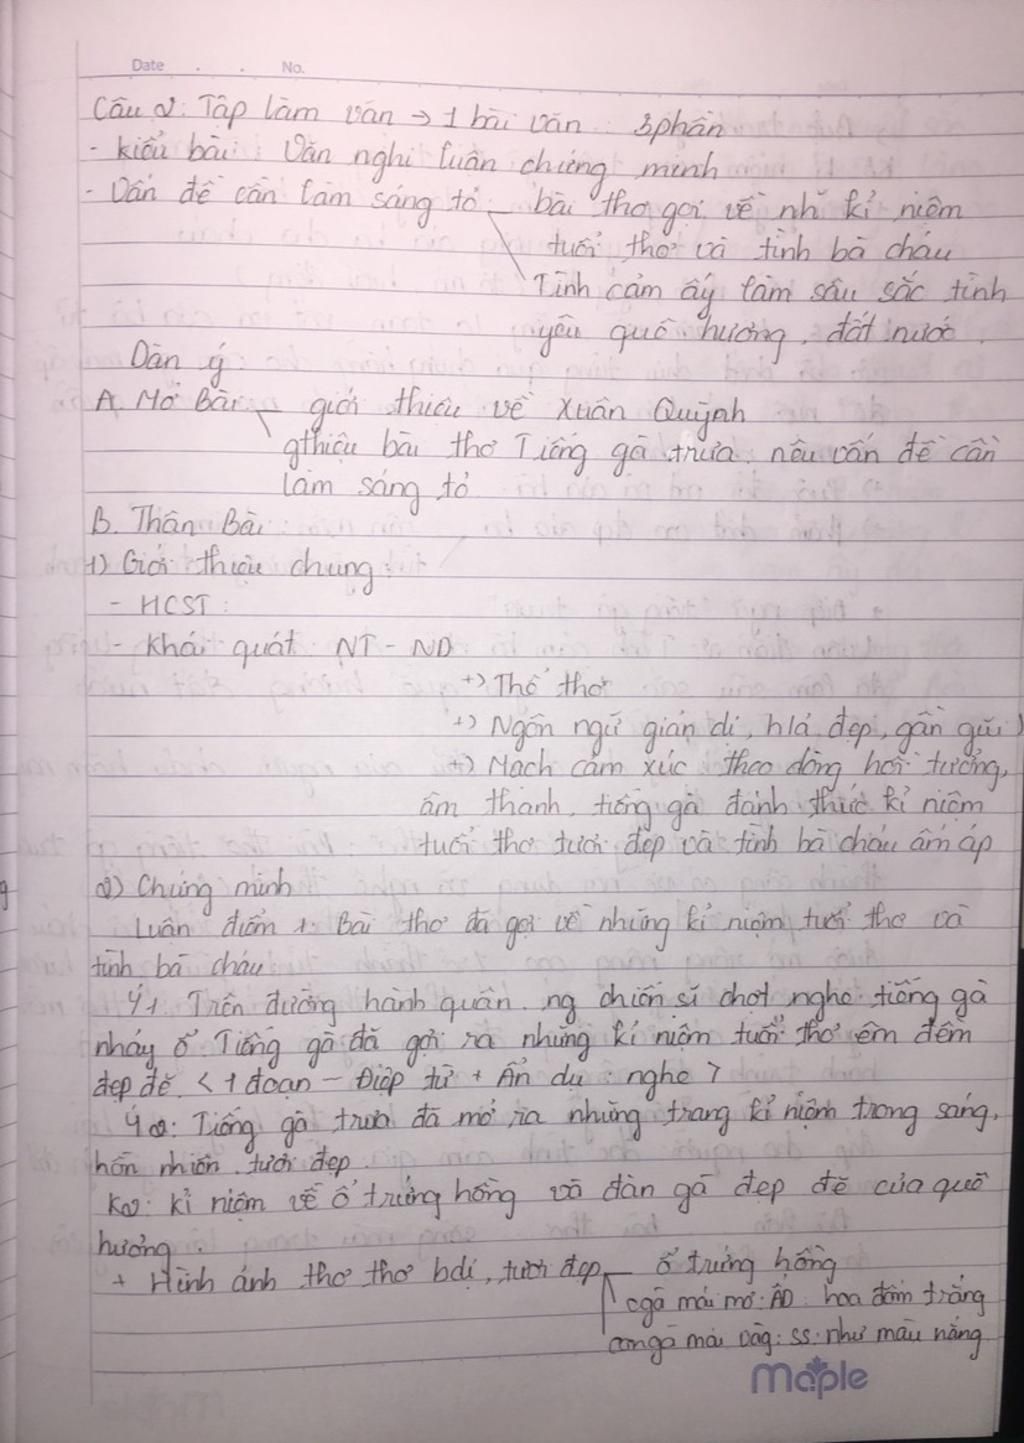 Date . . No.
Câu 2: Tập làm văn → 1 bài văn : 3 phần
- kiểu bài : Văn nghị luận chứng minh
- Vấn đề cần làm sáng tỏ - bài thơ gợi về nh~ kỉ niệm
tuổi thơ và tình bà cháu
Tình cảm ấy làm sâu sắc tình
yêu quê hương, đất nước.
Dàn ý
A Mở Bài: giới thiệu về Xuân Quỳnh
gthiệu bài thơ Tiếng gà trưa : nêu vấn đề cần
làm sáng tỏ
B. Thân Bài
1) Giới thiệu chung:
- HCST :
- Khái quát NT - ND
+) Thể thơ
+) Ngôn ngữ giản dị, h/ả đẹp, gần gũi
+) Mạch cảm xúc theo dòng hồi tưởng,
âm thanh, tiếng gà đánh thức kỉ niệm
tuổi thơ tươi đẹp và tình bà cháu ấm áp
2) Chứng minh
Luận điểm 1. Bài thơ đã gợi về những kỉ niệm tuổi thơ và
tình bà cháu
Ý1. Trên đường hành quân. ng chiến sĩ chợt nghe tiếng gà
nhảy ổ. Tiếng gà đã gợi ra những kỉ niệm tuổi thơ êm đềm
đẹp đẽ. < 1 đoạn - Điệp từ + Ẩn dụ : nghe >
Ý2: Tiếng gà trưa đã mở ra những trang kỉ niệm trong sáng,
hồn nhiên, tươi đẹp.
K2: kỉ niệm về ổ trứng hồng và đàn gà đẹp đẽ của quê
hương.
+ Hình ảnh thơ thơ bdị, tươi đẹp - ổ trứng hồng
cgà mái mơ: ÂD hoa đốm trắng
congà mái vàg: ss: như màu nắng
Maple